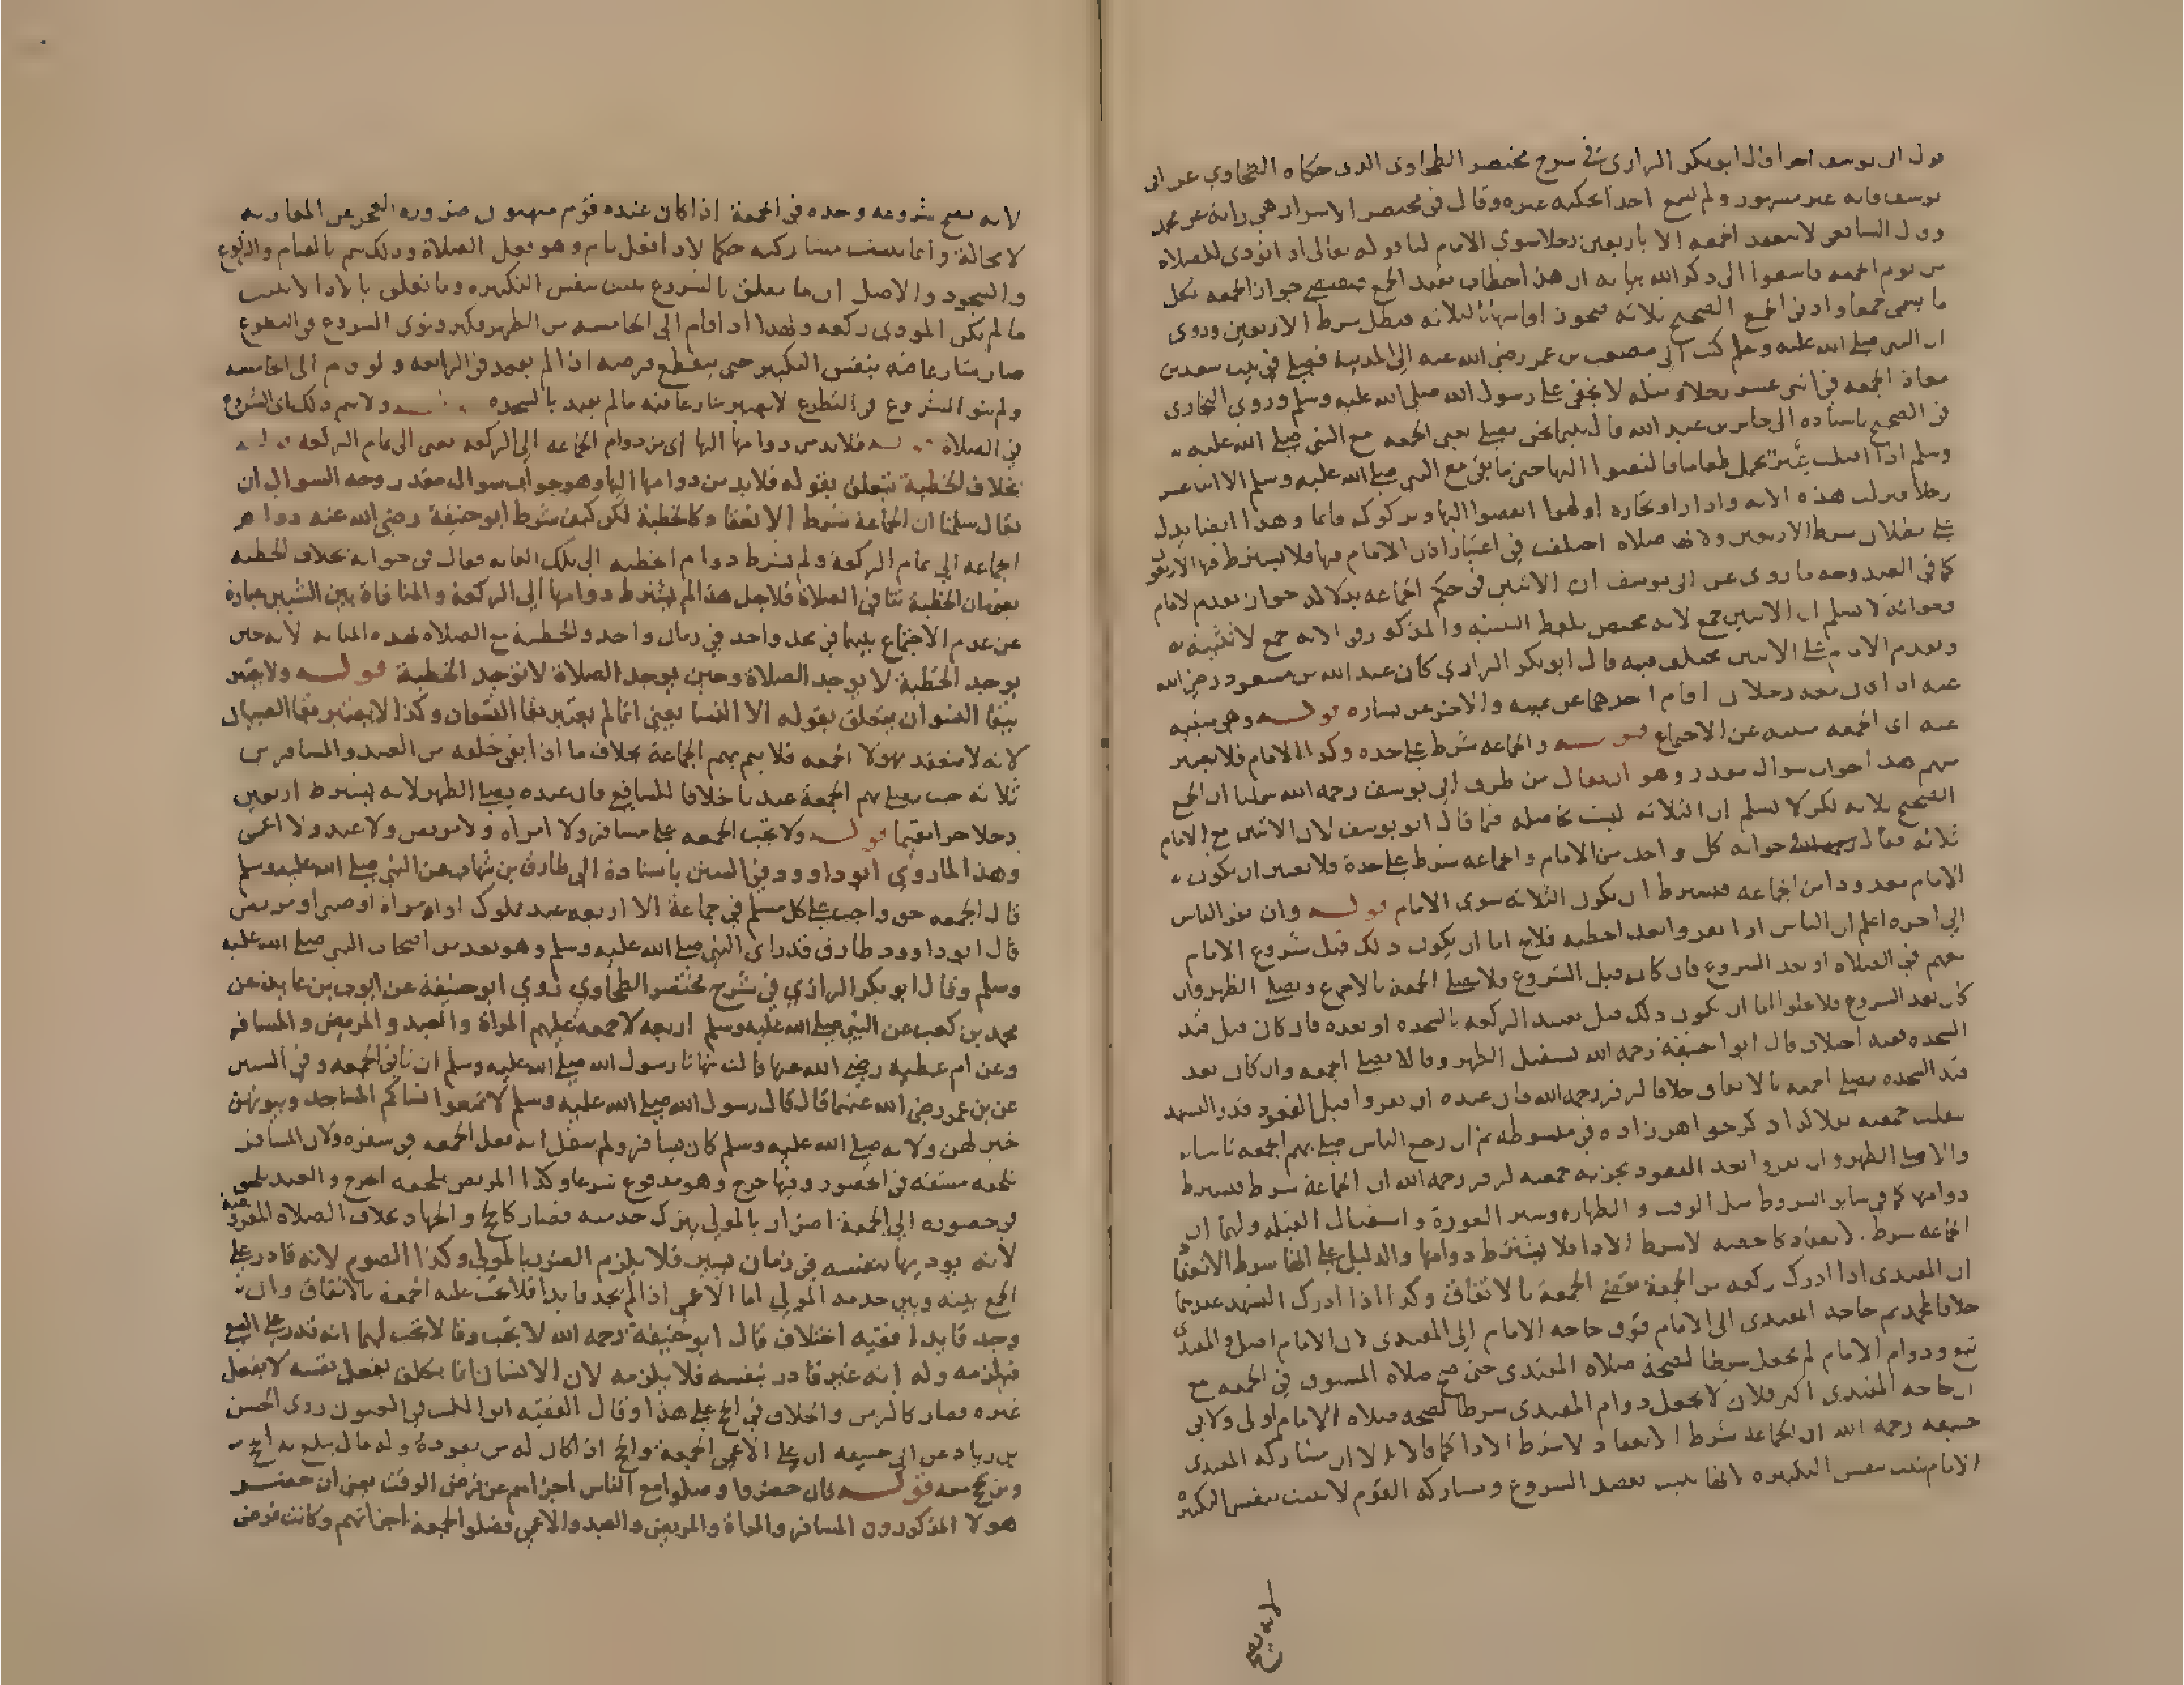 قول ابى يوسف احرا قال ابو بكر الرازى فى شرح مختصر الطحاوى الذى حكاه الطحاوي عن ابى
يوسف فانه غير مشهور ولم نسمع احدا يحكيه غيره وقال فى مختصر الاسرار هى رواية عن محمد
وقال الشافعى لا تنعقد الجمعه الا باربعين رجلا سوى الامام لنا قوله تعالى اذا نودى للصلاه
من يوم الجمعه فاسعوا الى ذكر الله بيانه ان هذا الخطاب بعد الجمع فيقتضى جواز الجمعه بكل
ما يسمى جمعا وادنى الجمع الصحيح ثلاثه فيجوز اقامتها بالثلاثه فبطل شرط الاربعين وروى
ان النبى صلى الله عليه وسلم كتب الى مصعب بن عمر رضى الله عنه الى المدينة فصلى فى بيت سعد بن
معاذ الجمعه فى اثنى عشر رجلا ومثله لا يخفى على رسول الله صلى الله عليه وسلم وروى البخارى
فى الصحيح باسناده الى جابر بن عبد الله قال بينما نحن نصلى يعنى الجمعه مع النبى صلى الله عليه
وسلم اذا اقبلت عير تحمل طعاما فالتفتوا اليها حتى ما بقى مع النبى صلى الله عليه وسلم الا اثنا عشر
رجلا فنزلت هذه الايه واذا راوا تجارة او لهوا انفضوا اليها وتركوك قائما وهذا ايضا يدل
على بطلان شرط الاربعين ولانها صلاه اختلفت فى اعتبار اذن الامام فيها فلا يشترط فيها الاربعون
كما فى العيد وجه ما روى عن ابى يوسف ان الاثنين فى حكم الجماعه بدلالة جواز تقدم الامام
وجوابه لا نسلم ان الاثنين جمع لانه مختص بلفظ التثنيه والمذكور فى الايه جمع لا تثنيه
وتقدم الامام على الاثنين مختلف فيه قال ابو بكر الرازى كان عبد الله بن مسعود رضى الله
عنه اذا كان معه رجلان اقام احدهما عن يمينه والاخر عن يساره قوله وهى منبئه
عنه اى الجمعه منبيه عن الاجتماع قوله والجماعه شرط على حده وكذا الامام فلا يعتبر
منهم هذا جواب سوال مقدر وهو ان يقال من طرف ابى يوسف رحمه الله سلمنا ان الجمع
الصحيح ثلاثه لكن لا نسلم ان الثلاثه ليست بحاصله فيما قال ابو يوسف لان الاثنين مع الامام
ثلاثه فقال جوابه كل واحد من الامام والجماعه شرط على حدة فلا يعتبر ان يكون
الامام معدودا من الجماعه فيشترط ان يكون الثلاثه سوى الامام قوله وان نفر الناس
الى اخره اعلم ان الناس اذا نفروا بعد الخطبه فلا يخ اما ان يكون ذلك قبل شروع الامام
معهم فى الصلاه او بعد الشروع فان كان قبل الشروع فلا يصلى الجمعة بالاجماع ويصلى الظهر وان
كان بعد الشروع فلا يخلوا اما ان يكون ذلك قبل تقييد الركعه بالسجده او بعده فان كان قبل قيد
السجده ففيه اختلاف قال ابو حنيفة رحمه الله يستقبل الظهر وقالا يصلى الجمعه وان كان بعد
قيد السجده يصلى الجمعه بالاتفاق خلافا لزفر رحمه الله فان عنده ان نفروا قبل القعود قدر التشهد
بطلت جمعته كذا ذكر خواهر زاده فى مبسوطه ثم ان رجع الناس صلى بهم الجمعه ثانيا
والا صلى الظهر وان نفروا بعد القعود يجزيه جمعته لزفر رحمه الله ان الجماعة شرط فيشترط
دوامها كما فى ساير الشروط مثل الوقت والطهاره وستر العورة واستقبال القبله ولهما ان
الجماعه شرط الانعقاد كالخطبه لا شرط الادا فلا يشترط دوامها والدليل على انها شرط الانعقاد
ان المقتدى اذا ادرك ركعه من الجمعة يقضى الجمعة بالاتفاق وكذا اذا ادرك التشهد عندهما
خلافا لمحمد ثم حاجه المقتدى الى الامام فوق حاجه الامام الى المقتدى لان الامام اصل والمقتدى
تبع ودوام الامام لم يجعل شرطا لصحة صلاه المقتدى حتى صح صلاه المسبوق فى الجمعه مع
ان حاجه المقتدى اكبر فلان لا يجعل دوام المقتدى شرطا لصحه صلاه الامام اولى ولابى
حنيفه رحمه الله ان الجماعه شرط الانعقاد لا شرط الادا كما قالا الا ان مشاركه المقتدى
الامام تثبت بنفس التكبيره لانها تثبت بمجرد الشروع ومشاركه القوم لا تثبت بنفس التكبيره
لانه يصح
لانه يصح شروعه وحده فى الجمعة اذا كان عنده قوم متهيون ضرورة العجز عن المقارنه
لا محالة وانما تثبت مشاركته حكما لاداء فعل تام وهو فعل الصلاة وذلك يتم بالقيام والركوع
والسجود والاصل ان ما تعلق بالشروع يثبت بنفس التكبيره وما تعلق بالادا لا يثبت
ما لم يكن المودى ركعه ولهذا اذا قام الى الخامسه من الظهر فكبر ونوى الشروع فى التطوع
صار شارعا فيه بنفس التكبير حتى ينقطع فرضه اذا لم يقعد فى الرابعه ولو قام الى الخامسه
ولم ينو الشروع فى التطوع لا يصير شارعا فيه ما لم يقيد بالسجده قوله ولا يتم ذلك اى الشروع
فى الصلاة قوله فلا بد من دوامها اليها اى من دوام الجماعه الى الركعه يعنى الى تمام الركعه قوله
بخلاف الخطبة يتعلق بقوله فلا بد من دوامها اليها وهو جواب سوال مقدر وجه السوال ان
يقال سلمنا ان الجماعة شرط الانعقاد كالخطبة لكن كيف شرط ابو حنيفة رضى الله عنه دوام
الجماعه الى تمام الركعة ولم يشرط دوام الخطبه الى تلك الغايه فقال فى جوابه بخلاف الخطبه
يعنى ان الخطبة تنافى الصلاة فلاجل هذا لم يشترط دوامها الى الركعة والمنافاة بين الشيئين عبارة
عن عدم الاجتماع بينهما فى محل واحد فى زمان واحد والخطبة مع الصلاه بهذه المثابه لانه حين
يوجد الخطبة لا يوجد الصلاة وحين يوجد الصلاة لا توجد الخطبة قوله ولا يعتبر
ببقا النسوان يتعلق بقوله الا النسا يعنى انما لم يعتبر بقا النسوان وكذا لا يعتبر بقا الصبيان
لانه لا تنعقد بهولا الجمعه فلا يتم بهم الجماعة بخلاف ما اذا بقى خلفه من العبيد والمسافرين
ثلاثه حيث يصلى بهم الجمعة عندنا خلافا للشافعى فان عنده يصلى الظهر لانه يشترط اربعين
رجلا حرا مقيما قوله ولا تجب الجمعه على مسافر ولا امراه ولا مريض ولا عبد ولا اعمى
وهذا لما روى ابو داوود فى السنن باسناده الى طارق بن شهاب عن النبى صلى الله عليه وسلم
قال الجمعه حق واجب على كل مسلم فى جماعة الا اربعه عبد مملوك او امراة او صبى او مريض
قال ابو داوود طارق قد راى النبى صلى الله عليه وسلم وهو يعد من اصحاب النبى صلى الله عليه
وسلم وقال ابو بكر الرازي في شرح مختصر الطحاوي روي ابو حنيفة عن ايوب بن عايذ عن
محمد بن كعب عن النبى صلى الله عليه وسلم اربعه لا جمعه عليهم المراة والعبد والمريض والمسافر
وعن ام عطيه رضى الله عنها قالت نهانا رسول الله صلى الله عليه وسلم ان ناتى الجمعه وفى السنن
عن بن عمر رضى الله عنهما قال قال رسول الله صلى الله عليه وسلم لا تمنعوا نساكم المساجد وبيوتهن
خير لهن ولانه صلى الله عليه وسلم كان يسافر ولم ينقل انه فعل الجمعه فى سفره ولان المسافر
تلحقه مشقه فى الحضور وفيها حرج وهو مدفوع شرعا وكذا المريض يلحقه الحرج والعبد يلحق
فى حضوره الى الجمعة اضرار بالمولى بترك خدمته فصار كالحج والجهاد بخلاف الصلاه المفروضه
لانه يوديها بنفسه فى زمان يسير فلا يلزم الضرر بالمولى وكذا الصوم لانه قادر على
الجمع بينه وبين خدمه المولى اما الاعمى اذا لم يجد قايدا فلا تجب عليه الجمعة بالاتفاق وان
وجد قايدا ففيه اختلاف قال ابو حنيفة رحمه الله لا تجب وقالا تجب لهما انه قدر على السعى
فيلزمه وله انه غير قادر بنفسه فلا يلزمه لان الانسان انما يكلف بفعل نفسه لا بفعل
غيره فصار كالزمن والخلاف فى الحج على هذا وقال الفقيه ابو الليث فى العيون روى الحسن
بن زياد عن ابى حنيفه ان على الاعمى الجمعة والحج اذا كان له من يقوده وله مال يبلغ به الحج
ومن يحج معه قوله فان حضروا وصلوا مع الناس اجزاهم عن فرض الوقت يعنى ان حضر
هولا المذكورون المسافر والمراة والمريض والعبد والاعمى فصلوا الجمعة اجزاتهم وكانت فرض